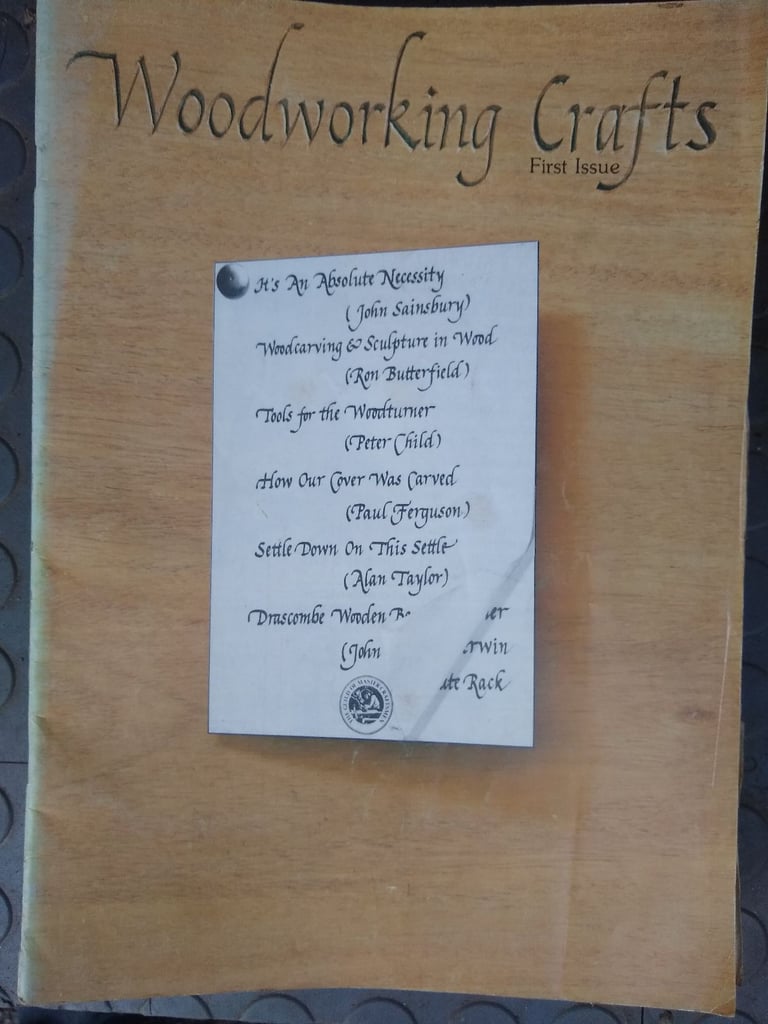 Woodworking Crafts
First Issue
It's An Absolute Necessity
(John Sainsbury)
Woodcarving & Sculpture in Wood
(Ron Butterfield)
Tools for the Woodturner
(Peter Child)
How Our Cover Was Carved
(Paul Ferguson)
Settle Down On This Settle
(Alan Taylor)
Drascombe Wooden
(John
Rack
THE GUILD OF MASTER CRAFTSMEN